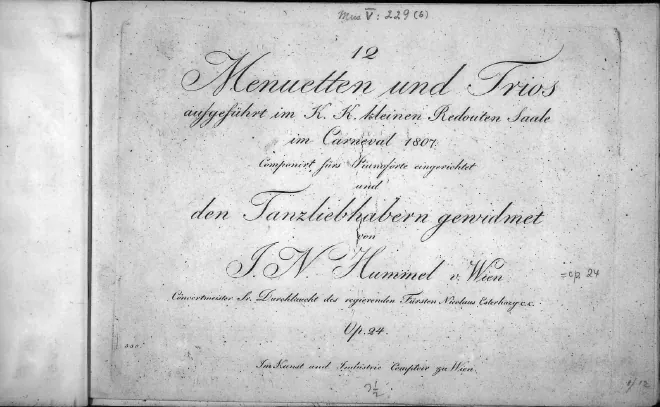 Mus V : 229 (6)
12
Menuetten und Trios
aufgeführt im K. K. kleinen Redouten Saale
im Carneval 1807.
Componirt fürs Pianoforte eingerichtet
und
den Tanzliebhabern gewidmet
von
J. N. Hummel v. Wien
=op 24
Concertmeister Sr. Durchlaucht des regierenden Fürsten Nicolaus Esterhazy c.c.
Op. 24.
Im Kunst und Industrie Comptoir zu Wien.